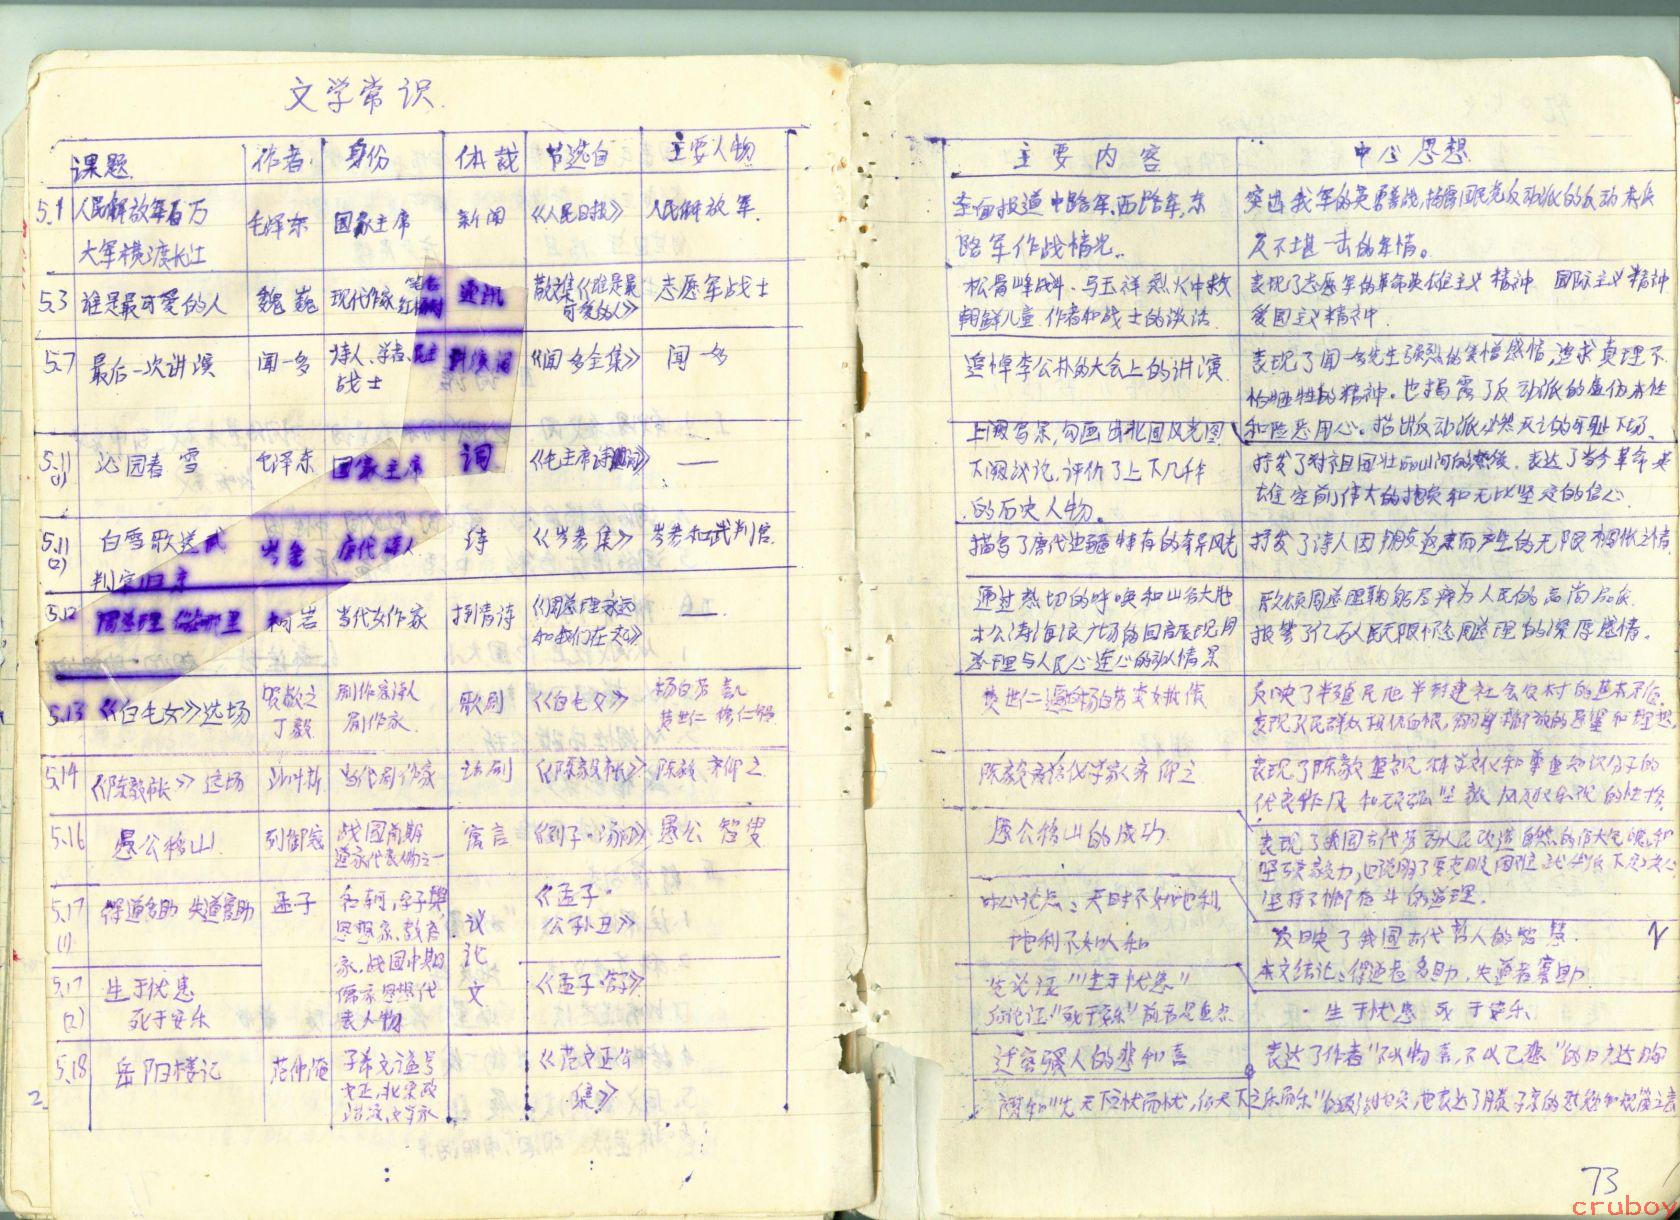 文学常识.
课题 作者 身份 体裁 节选自 主要人物
5.1 人民解放军百万 毛泽东 国家主席 新闻 《人民日报》 人民解放军.
大军横渡长江
5.3 谁是最可爱的人 魏巍 现代作家 笔名 红杨树 通讯 散文集《谁是最 志愿军战士
可爱的人》
5.7 最后一次讲演 闻一多 诗人、学者、民主 讲演词 《闻一多全集》 闻一多
战士
5.11 (1) 沁园春 雪 毛泽东 国家主席 词 《毛主席诗词》 —
5.11 (2) 白雪歌送武 岑参 唐代诗人 诗 《岑参集》 岑参和武判官.
判官归京
5.12 周总理 你在哪里 柯岩 当代女作家 抒情诗 《周总理永远 —
和我们在一起》
5.13 《白毛女》选场 贺敬之 剧作家诗人 歌剧 《白毛女》 杨白劳 喜儿
丁毅 剧作家. 黄世仁 穆仁智
5.14 《陈毅市长》选场 沙叶新 当代剧作家 话剧 《陈毅市长》 陈毅 齐仰之
5.16 愚公移山. 列御寇 战国前期 寓言 《列子·汤问》 愚公 智叟
道家代表人物之一
5.17 (1) 得道多助 失道寡助 孟子 名轲,字子舆 《孟子·
思想家、教育 议 公孙丑》
家,战国中期 论
5.17 (2) 生于忧患 儒家思想代 文 《孟子·告子》
死于安乐 表人物
5.18 岳阳楼记 范仲淹 字希文谥号 《范文正公
文正,北宋政 集》
治家,文学家
2
主要内容 中心思想
全面报道中路军、西路军、东 突出我军的英勇善战,揭露国民党反动派的反动本质
路军作战情况.. 及不堪一击的军情。
松骨峰战斗、马玉祥烈火中救 表现了志愿军的革命英雄主义精神 国际主义精神
朝鲜儿童 作者和战士的谈话. 爱国主义精神.
追悼李公朴的大会上的讲演. 表现了闻一多先生强烈的爱憎感情,追求真理不
怕牺牲的精神。也揭露了反动派的虚伪本性
和险恶用心。指出反动派必然灭亡的可耻下场.
上阕写景,勾画出北国风光图
下阕议论,评价了上下几千年 抒发了对祖国壮丽山河的热爱. 表达了当今革命英
的历史人物。 雄空前伟大的抱负和无比坚定的信心
描写了唐代边疆特有的奇异风光 抒发了诗人因朋友返京而产生的无限惆怅之情
通过热切的呼唤和山谷大地 歌颂周总理鞠躬尽瘁为人民的高尚品质.
林涛海浪广场的回音表现周 抒发了亿万人民无限怀念周总理的深厚感情。
总理与人民心连心的动人情景
黄世仁逼杨白劳卖女抵债 反映了半殖民地半封建社会农村的基本矛盾.
表现了人民群众报仇血恨,翻身解放的愿望和理想
陈毅夜访化学家齐仰之 表现了陈毅重视科学文化和尊重知识分子的
优良作风和顽强坚毅风趣乐观的性格.
愚公移山的成功. 表现了我国古代劳动人民改造自然的伟大气魄和
坚强毅力,也说明了要克服困难就必须下定决心
坚持不懈奋斗的道理.
中心论点:天时不如地利, 反映了我国古代哲人的智慧.
地利不如人和 本文结论:得道者多助,失道者寡助.
先论证"生于忧患" · 生于忧患 死于安乐
后论证"死于安乐"前者是重点
迁客骚人的悲和喜 表达了作者"不以物喜,不以己悲"的旷达胸
襟和"先天下之忧而忧,后天下之乐而乐"的政治抱负,也表达了对滕子京的慰勉和规箴之意
73
cruboy